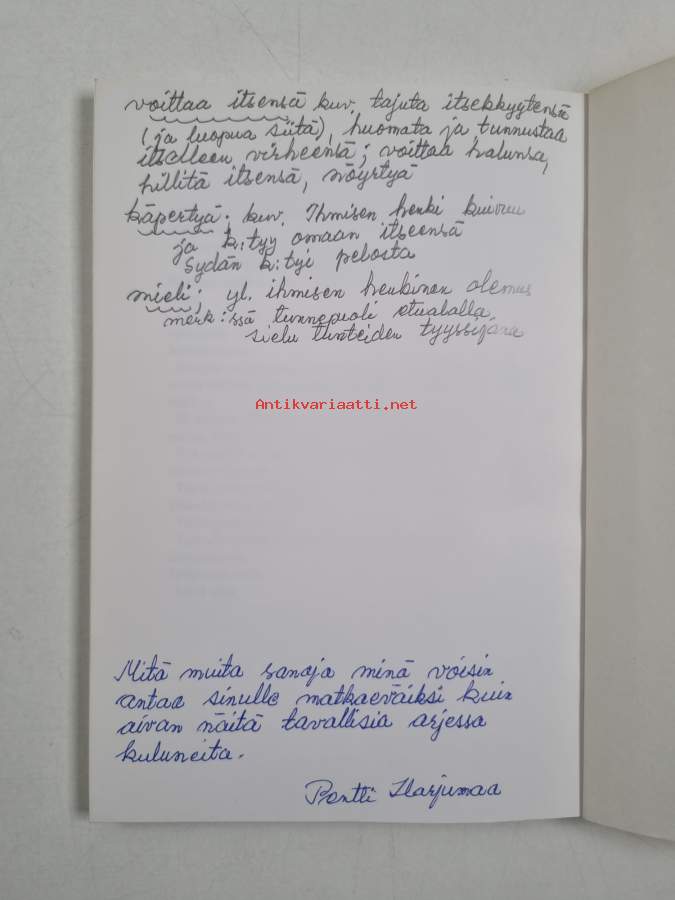 voittaa itsensä kuv. tajuta itsekkyytensä
(ja luopua siitä), huomata ja tunnustaa
itselleen virheensä; voittaa halunsa,
hillitä itsensä, nöyrtyä
käpertyä. kuv. Ihmisen henki kuivuu
ja k:tyy omaan itseensä
Sydän k:tyi pelosta
mieli; yl. ihmisen henkinen olemus
merk:ssä tunnepuoli etualalla,
sielu tunteiden tyyssijana
Antikvariaatti.net
Mitä muita sanoja minä voisin
antaa sinulle matkaeväiksi kuin
aivan näitä tavallisia arjessa
kuluneita.
Pentti Harjumaa